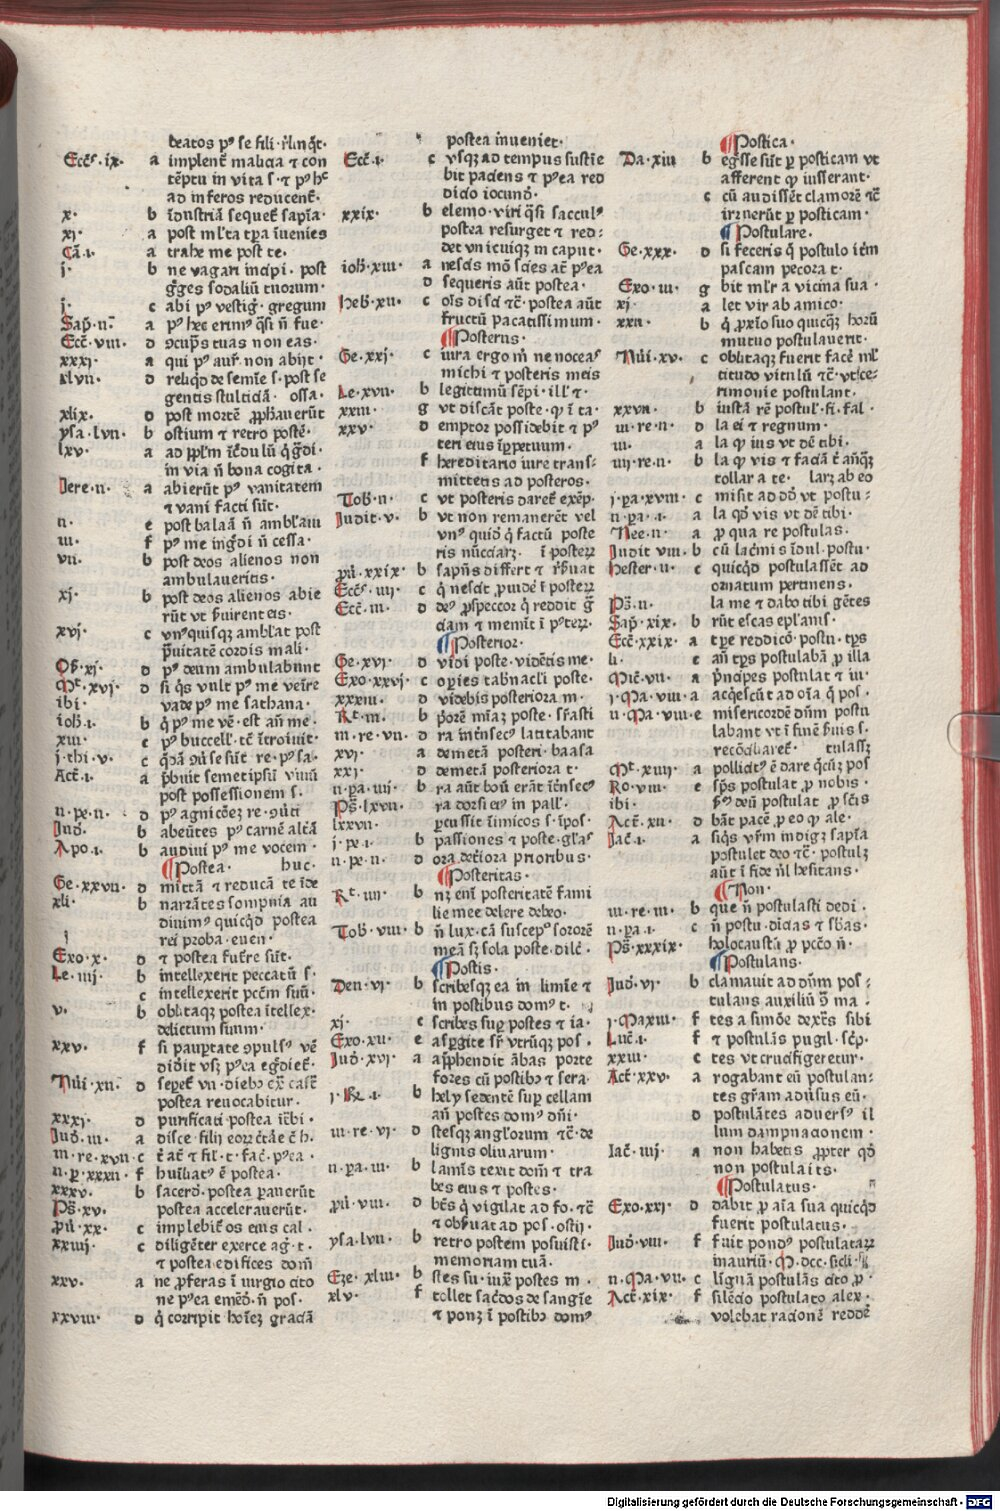 beatos pꝰ se fili· rͥlinq̄t·
Ecc̄ꝭ·ix· a implent̄ malicia ⁊ con
tēptu in vita s· ⁊ pꝰ hͨ
ad inferos reducent̄·
x· b īdustriā sequet̄ sapīa·
xj· a post ml̄ta tp̄a īuenies
Cā·i· a trahe me post te·
j· b ne vagari incipi· post
gͥges sodaliū tuorum·
j· c abi pꝰ vestiḡ· gregum
Sap̄·ii· a pꝰ hec erimꝰ q̄si n̄ fue·
Ecc̄·viii· d ꝯcupīs tuas non eas·
xxxi· a qui pꝰ aur̄· non abijt·
xlvii· d reliq̄d de semīe s· post se
gentis stulticiā· ossa·
xlix· d post mortē ꝓph̄auerūt
ysa·lvii· b ostium ⁊ retro postē·
lxv· a ad pp̄lm īc̄dulū q̄ gͥdi·
in via n̄ bona cogita·
Jere·ii· a abierūt pꝰ vanitatem
⁊ vani facti sūt·
ii· e post balaā n̄ ambl̄aui
iii· f pꝰ me ingͥdi n̄ cessa·
vii· b post deos alienos non
ambulaueritis·
xj· b post deos alienos abie
rūt vt ẜuirent eis·
xvj· c vnꝰquisqꝫ ambl̄at post
p̄uitatē cordis mali·
Os̄·xj· d pꝰ deum ambulabunt
Mͭ·xvj· d si q̄s vult pꝰ me veīre
ibi· vade pꝰ me sathana·
ioh̄·i· b q̄ pꝰ me vē·est an̄ me·
xiii· c pꝰ buccell̄·tc̄ ītroiuit·
j·thi·v· c q̄dā ꝯūse sūt re·pꝰ sa·
Act̄·i· a p̄buit semetipsū viuū
post possessionem s·
ii·pe·ii· d pꝰ agnicōeꝫ re·ꝯūti
Jud̄· b abeūtes pꝰ carnē alt̄ā
Apo·i· b audiui pꝰ me vocem·
¶Postea· huc·
Ge·xxvii· d mittā ⁊ reducā te īde
xli· b narrātes sompnia au
diuimꝰ quicq̄d postea
rei proba·euen·
Exo·x· d ⁊ postea fuēre sūt·
Le·iiij· b intellexerit peccatū s·
c intellexerit pcc̄m suū·
v· b oblitaqꝫ postea ītellex·
delictum suum·
xxv· f si paupertate ꝯpulsꝰ vē
didit vsꝫ pꝰea egͥdiet̄·
Nūi·xii· d sepet̄ vii·diebꝫ ex̄ cast̄
postea reuocabitur·
xxxi· d purificati postea īt̄bi·
Jud̄·iii· a disce·filij eoꝝ c̄tāe c̄ h·
iii·re·xvii· c t̄ ac̄ ⁊ fil·t·fac̄·pꝰea·
ii·p̲·xxxii· f huīliatꝰ ē postea·
xxxv· b sacerd̄·postea p̲auerūt
Ps̄·xv· postea accelerauerūt·
ꝓū·xx· c implebit̄ os eius cal·
xxiiij· c diligēter exerce aḡ·t·
⁊ postea edifices dom̄
xxv· a ne ꝓferas ī iurgio cito
ne pꝰea emed̄·n̄ pos·
xxviii· d q̄ corripit hoīeꝫ graciā
postea inueniet·
Ecc̄·i· c vsqꝫ ad tempus sustīe
bit paciens ⁊ pꝰea red
dicio iocund̄·
xxix· b elemo·viri q̄si sacculꝰ
postea resurget ⁊ red꞊
det vnicuiqꝫ in caput·
ioh̄·xiii· a nescis mō scies at̄ pꝰea
d sequeris aūt postea·
Heb̄·xii· c oīs disci tc̄·postea aūt
fructū pacatissimum·
¶Posterus·
Ge·xxj· c iura ergo m̄ ne noceaꝭ
michi ⁊ posteris meis
Le·xvii· b legittimū sēpi·ill̄ ⁊·
xxiii· g vt discāt poste·q̄ ī ta·
xxv· d emptor possidebit ⁊ pꝰ
teri eius īpp̲etuum·
f hereditario iure trans꞊
mittens ad posteros·
Tob̄·ii· c vt posteris daret̄ exēp̄·
Judit·v· b vt non remanerēt vel
vnꝰ quid̄ q̄ factū poste
ris nūciarꝫ· ī posteꝝ
ꝓū·xxix· b sapīiis differt ⁊ rẜuat
Ecc̄ꝭ·iij· c q̄ nescit ꝓuidē ī posteꝝ
Ecc̄·iii· d deꝰ ꝓspector q̄ reddit gͥ
ciam ⁊ memit̄ ī pꝰteꝝ·
¶Posterior·
Ge·xvi· d vidi poste·vidētis me·
Exo·xxvj· c op̲ies tab̄nacl̄i poste·
xxxiii· d videbis posteriora m·
Rͭ·iii· b p̄orē mīaꝫ poste·sr̄asti
iii·re·vii· d ra intn̄secꝰ latitabant
xvi· a demetā posteri·baasa
xxi· d demetā posteriora t·
ii·pa·iiij· b ra aūt boū erāt īt̄nsecꝰ
Ps̄·lxvii· ra dorsi eiꝰ in pall̄·
lxxvii· p̲cussit īimicos s·īpos·
j·pe·i· b passiones ⁊ poste·gl̄as
ii·pe·ii· d ora det̄iora prioribus·
¶Posteritas·
Rͭ·iiij· b nꝫ eni posteritatē fami
lie mee delere debeo·
Tob̄·viii· b n̄ lux·cā suscepꝰ sororē
meā sꝫ sola poste·dilc̄·
¶Postis·
Deu·vi· b scribesqꝫ ea in limīe ⁊
in postibus domꝰ t·
xj· c scribes sup̲ postes ⁊ ia·
Exo·xii· e asp̲gite sr̄ vtrūqꝫ pos·
Jud̄·xvj· a app̄hendit ābas porte
fores cū postibꝫ ⁊ sera·
j·R̄·i· b hely sedente sup̲ cellam
an̄ postes domꝰ dn̄i·
iii·re·vi· d stesqꝫ angl̄orum tc̄·de
lignis oliuarum·
ii·pa·iii· b lamīs texit dom̄ ⁊ tra
bes eius ⁊ postes·
ꝓū·viii· d bt̄s q̄ vigilat ad fo·tc̄
⁊ obẜuat ad pos·ostij·
ysa·lvii· b retro postem posuisti·
memoriam tuā·
Eze·xliii· b stes su·iux̄ postes m·
xlv· f tollet sac̄dos de sangīe
⁊ ponꝫ ī postibꝫ domꝰ
¶Postica·
Da·xiii b egͥsse sūt p̲ posticam vt
afferent q̄ iusserant·
c cū audissēt clamorē tc̄
irruerūt p̲ posticam·
¶Postulare·
Ge·xxx· d si feceris q̄ postulo it̄m
pascam pecora t·
Exo·iii· g bit ml̄r a vicina sua·
xi· a let vir ab amico·
xxii· b q̄ ꝓxīo suo quicqꝫ hoꝝ
mutuo postulauerit·
Nūi·xv· c oblitaqꝫ fuerit facē ml̄
titudo vitulū tc̄·vt ce꞊
rimonie postulant·
xxvii· b iustā rē postul̄·fi·sal·
iii·re·ii· d la ei ⁊ regnum·
iii· a la q̄ vis vt dē tibi·
iiij·re·ii· b la q̄ vis ⁊ faciā t̄ an̄qꝫ
tollar a te· larꝫ ab eo
j·pa·xviii· c misit ad dd̄ vt postu꞊
ii·pa·i· a la qd̄ vis vt dē tibi·
Nee·ii· a ꝓ qua re postulas·
Judit viii· b cū lac̄mis īdul·postu·
Hester·ii· c quicq̄d postulassēt ad
ornatum pertinens·
Ps̄·ii· la me ⁊ dabo tibi gētes
Sap̄·xix· b rūt escas epl̄ans·
Ecc̄·xxix· a tp̲e reddicō·postu·tp̲s
li· c an̄ tp̲s postulabā ꝓ illa
Mic̄·vii· a p̄ncipes postulat ⁊ iu·
j·Ma·viii· a acqͥescūt ad oīa q̄ pos·
ii·Ma·viii· e misericordē dn̄m postu
labant vt ī finē ẜuis s·
recōciliaret̄· tulassꝫ
Mͭ·xiiij· a pollicitꝰ ē dare q̄cūqꝫ pos
Ro·viii· e sp̄s postulat ꝓ nobis·
ibi· sꝰ deū postulat ꝓ sc̄is
Act̄·xii· d bāt pacē ꝓ eo q̄ ale·
Jac̄·i· a siq̄s vr̄m indigꝫ sapīa
postulet deo tc̄·postulꝫ
aūt ī fide nl̄ hesitans·
¶Non·
iii·re·iii· b que n̄ postulasti dedi·
ii·pa·i· c n̄ postu·diītias ⁊ sb̄as·
Ps̄·xxxix· holocaustā ꝓ pcc̄o n̄·
¶Postulans·
Jud̄·vi· b clamauit ad dn̄m pos꞊
tulans auxiliū ꝯ̄ ma·
j·Maxiii· f tes a simōe dext̄s sibi
Luc̄·i· f ⁊ postulās pugil·sc̄p·
xxiii· c tes vt crucifigeretur·
Act̄·xxv· a rogabant eū postulan꞊
tes gr̄am aduīsus eū·
d postulātes aduersꝰ il
lum dampnacionem·
Iac̄·iiij· a non habetis ꝓpter qd̄
non postulaīts·
¶Postulatus·
Exo·xxi· d dabit ꝓ aīa sua quicq̄d
fuerit postulatus·
Jud̄·viii· f fuit pondꝰ postulataꝝ
inauriū·M·dcc·sicli·
ii·Ma·vii· c līguā postulās cito ꝓ·
Act̄·xix· f silēcio postulato alex·
volebat racionē reddē
Digitalisierung gefördert durch die Deutsche Forschungsgemeinschaft - DFG